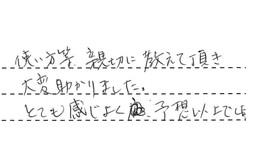 使い方等 親切に教えて頂き
大変助かりました。
とても感じよく 予想以上でし